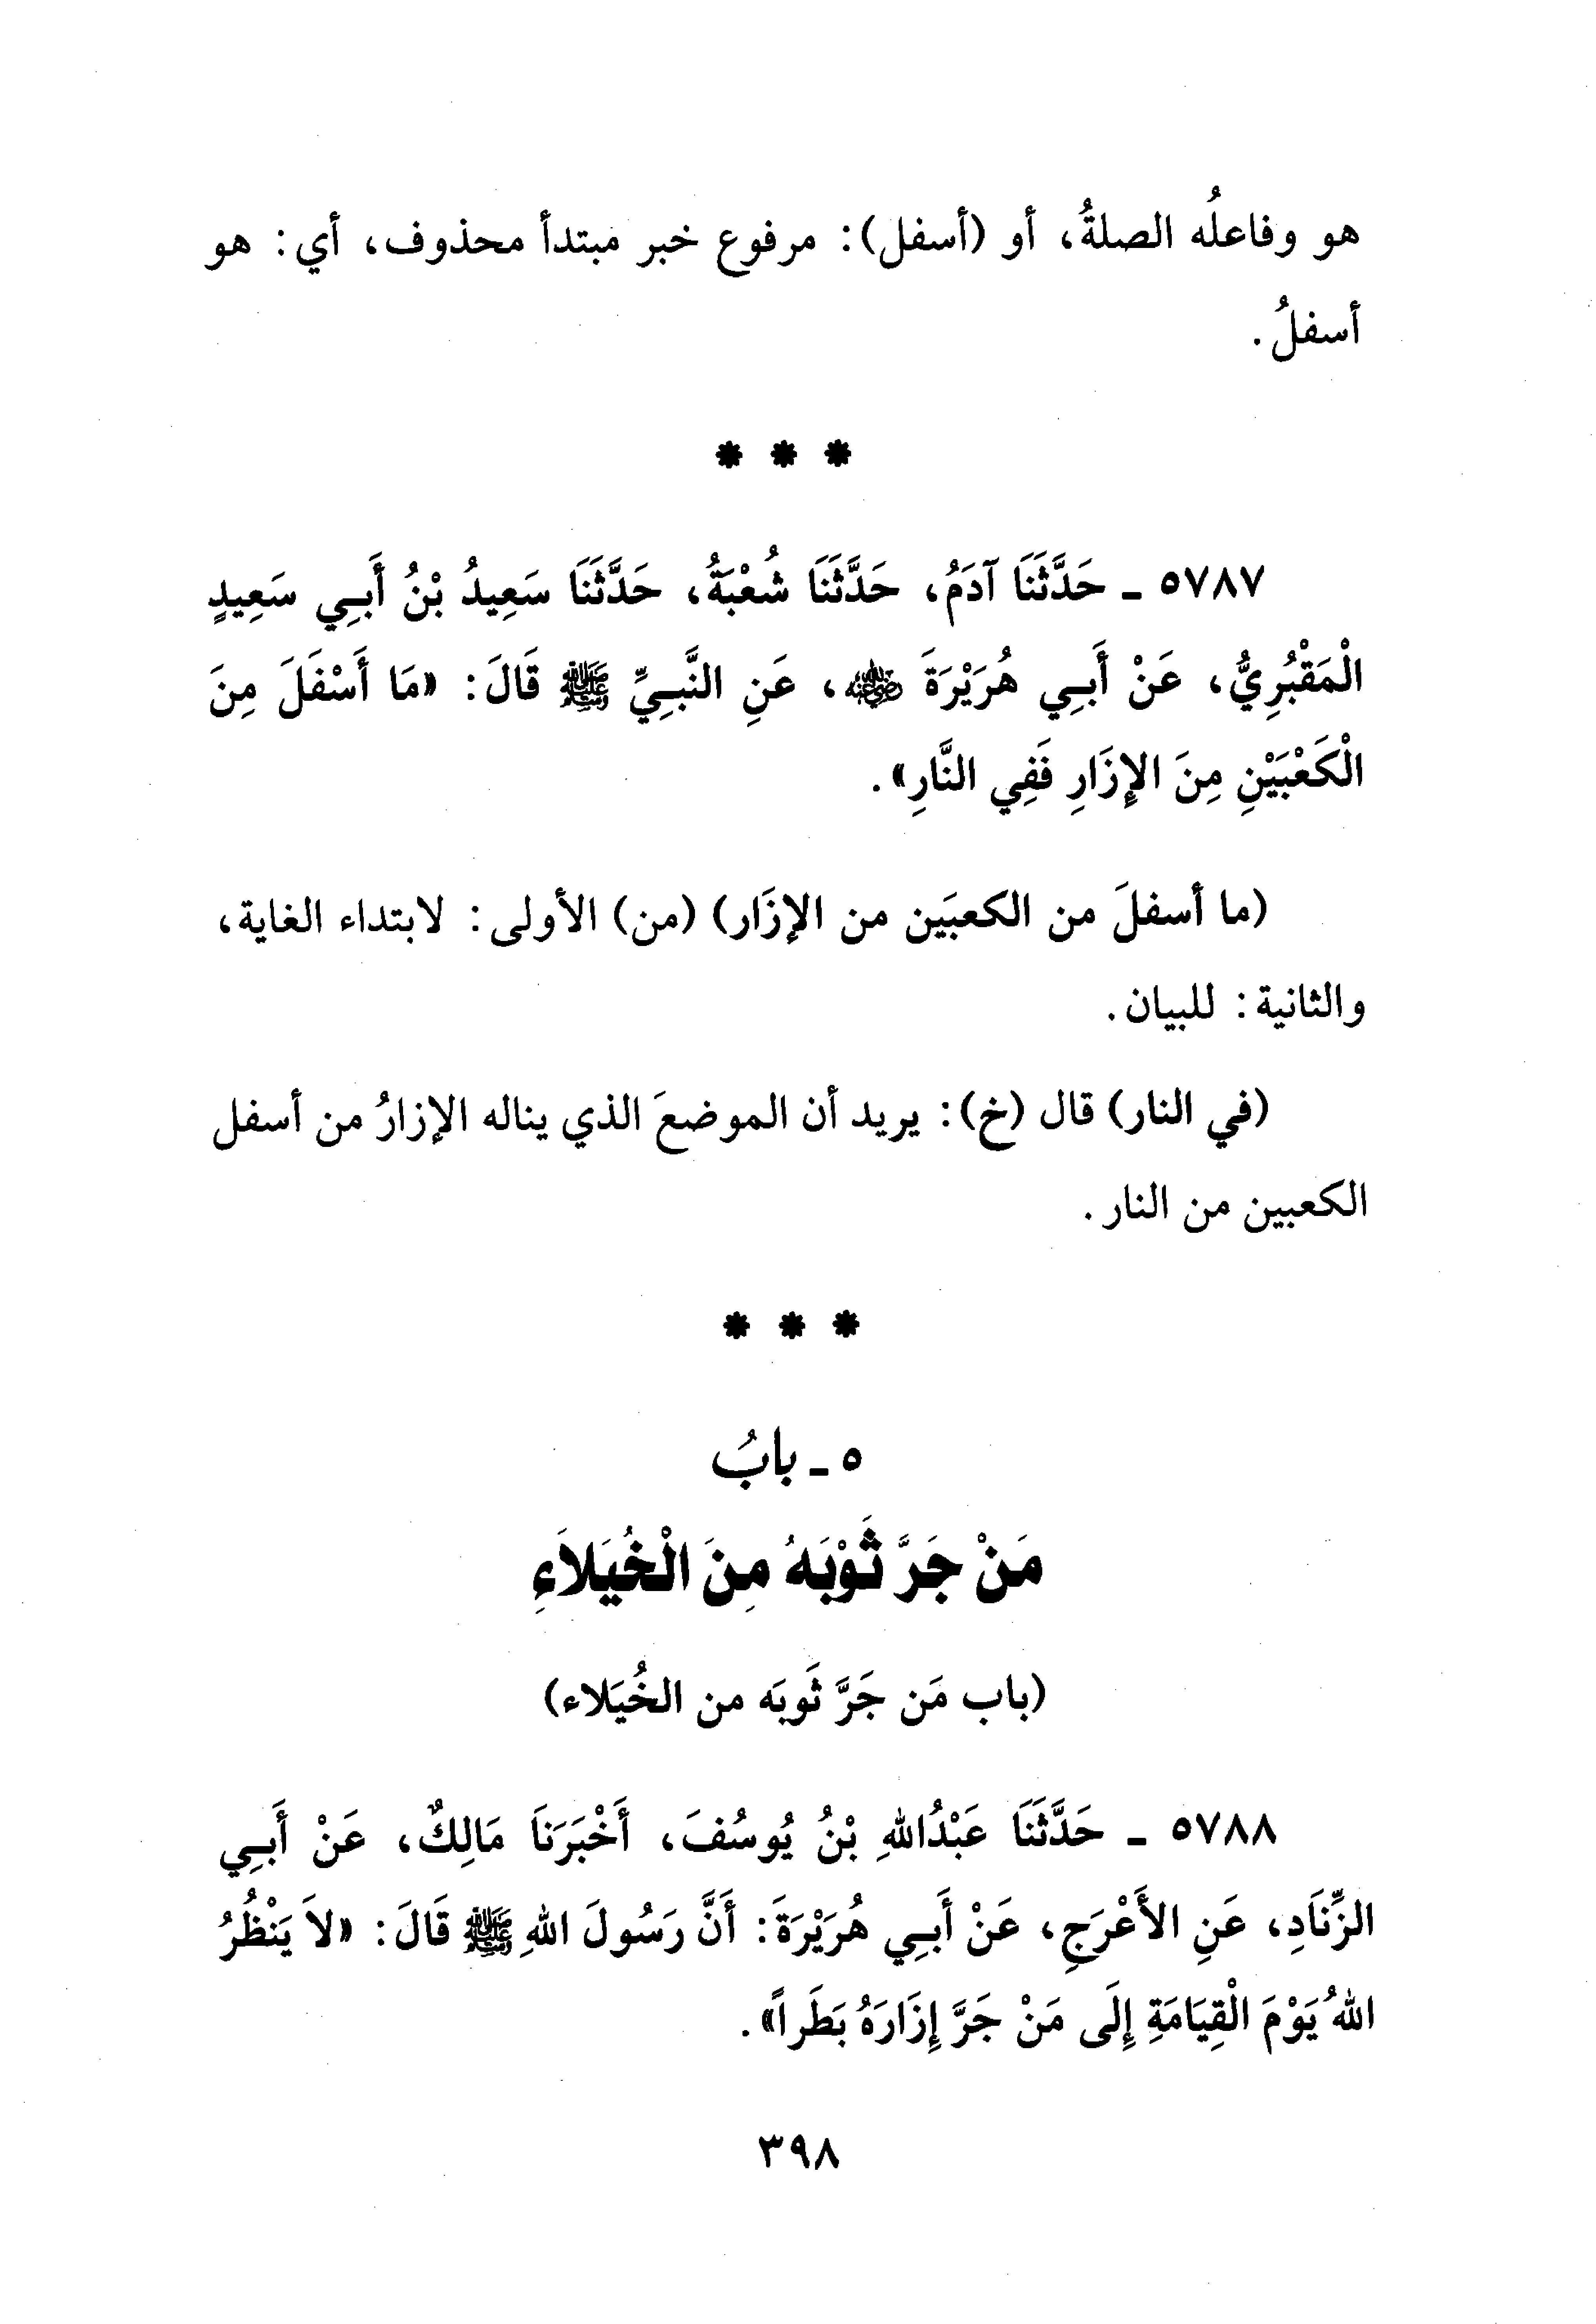 هو وفاعلُه الصلةُ، أو (أسفل): مرفوع خبر مبتدأ محذوف، أي: هو
أسفلُ.
* * *
٥٧٨٧ ـ حَدَّثَنَا آدَمُ، حَدَّثَنَا شُعْبَةُ، حَدَّثَنَا سَعِيدُ بْنُ أَبِي سَعِيدٍ
الْمَقْبُرِيُّ، عَنْ أَبِي هُرَيْرَةَ رضي الله عنه، عَنِ النَّبِيِّ ﷺ قَالَ: «مَا أَسْفَلَ مِنَ
الْكَعْبَيْنِ مِنَ الإِزَارِ فَفِي النَّارِ».
(ما أسفلَ من الكعبَين من الإزَار) (من) الأولى: لابتداء الغاية،
والثانية: للبيان.
(في النار) قال (خ): يريد أن الموضعَ الذي يناله الإزارُ من أسفل
الكعبين من النار.
* * *
٥ ـ بابُ
مَنْ جَرَّ ثَوْبَهُ مِنَ الْخُيَلاَءِ
(باب مَن جَرَّ ثَوبَه من الخُيَلاء)
٥٧٨٨ ـ حَدَّثَنَا عَبْدُاللهِ بْنُ يُوسُفَ، أَخْبَرَنَا مَالِكٌ، عَنْ أَبِي
الزِّنَادِ، عَنِ الأَعْرَجِ، عَنْ أَبِي هُرَيْرَةَ: أَنَّ رَسُولَ اللهِ ﷺ قَالَ: «لاَ يَنْظُرُ
اللهُ يَوْمَ الْقِيَامَةِ إِلَى مَنْ جَرَّ إِزَارَهُ بَطَراً».
٣٩٨